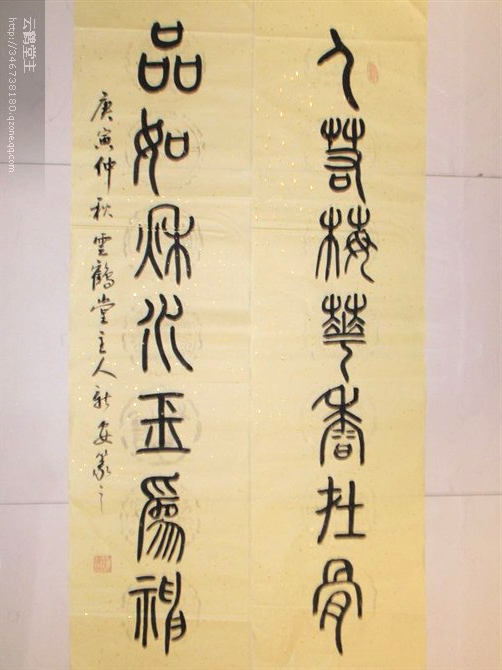 人若梅華香在骨
品如秋水玉爲神
庚寅仲秋雲鶴堂主人新安篆之
云鹤堂主
http://346738180.qzone.qq.com